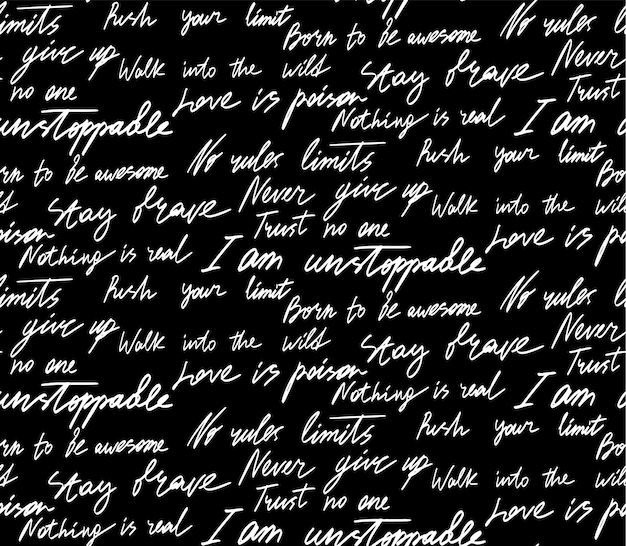 limits Push your limit Born to be awesome No rules limits
give up Walk into the wild Stay brave Never
no one Love is poison Nothing is real Trust
unstoppable I am
Born to be awesome No rules limits Push your limit Bo
Stay brave Never give up Walk into the wild
poison Nothing is real Trust no one Love is po
I am unstoppable
limits Push your limit Born to be awesome No rules l
give up Walk into the wild Stay brave Never
no one Love is poison Nothing is real Trust
unstoppable I am
rn to be awesome No rules limits Push your limit Bo
Stay brave Never give up Walk into the wil
poison Nothing is real Trust no one Love is po
I am unstoppable